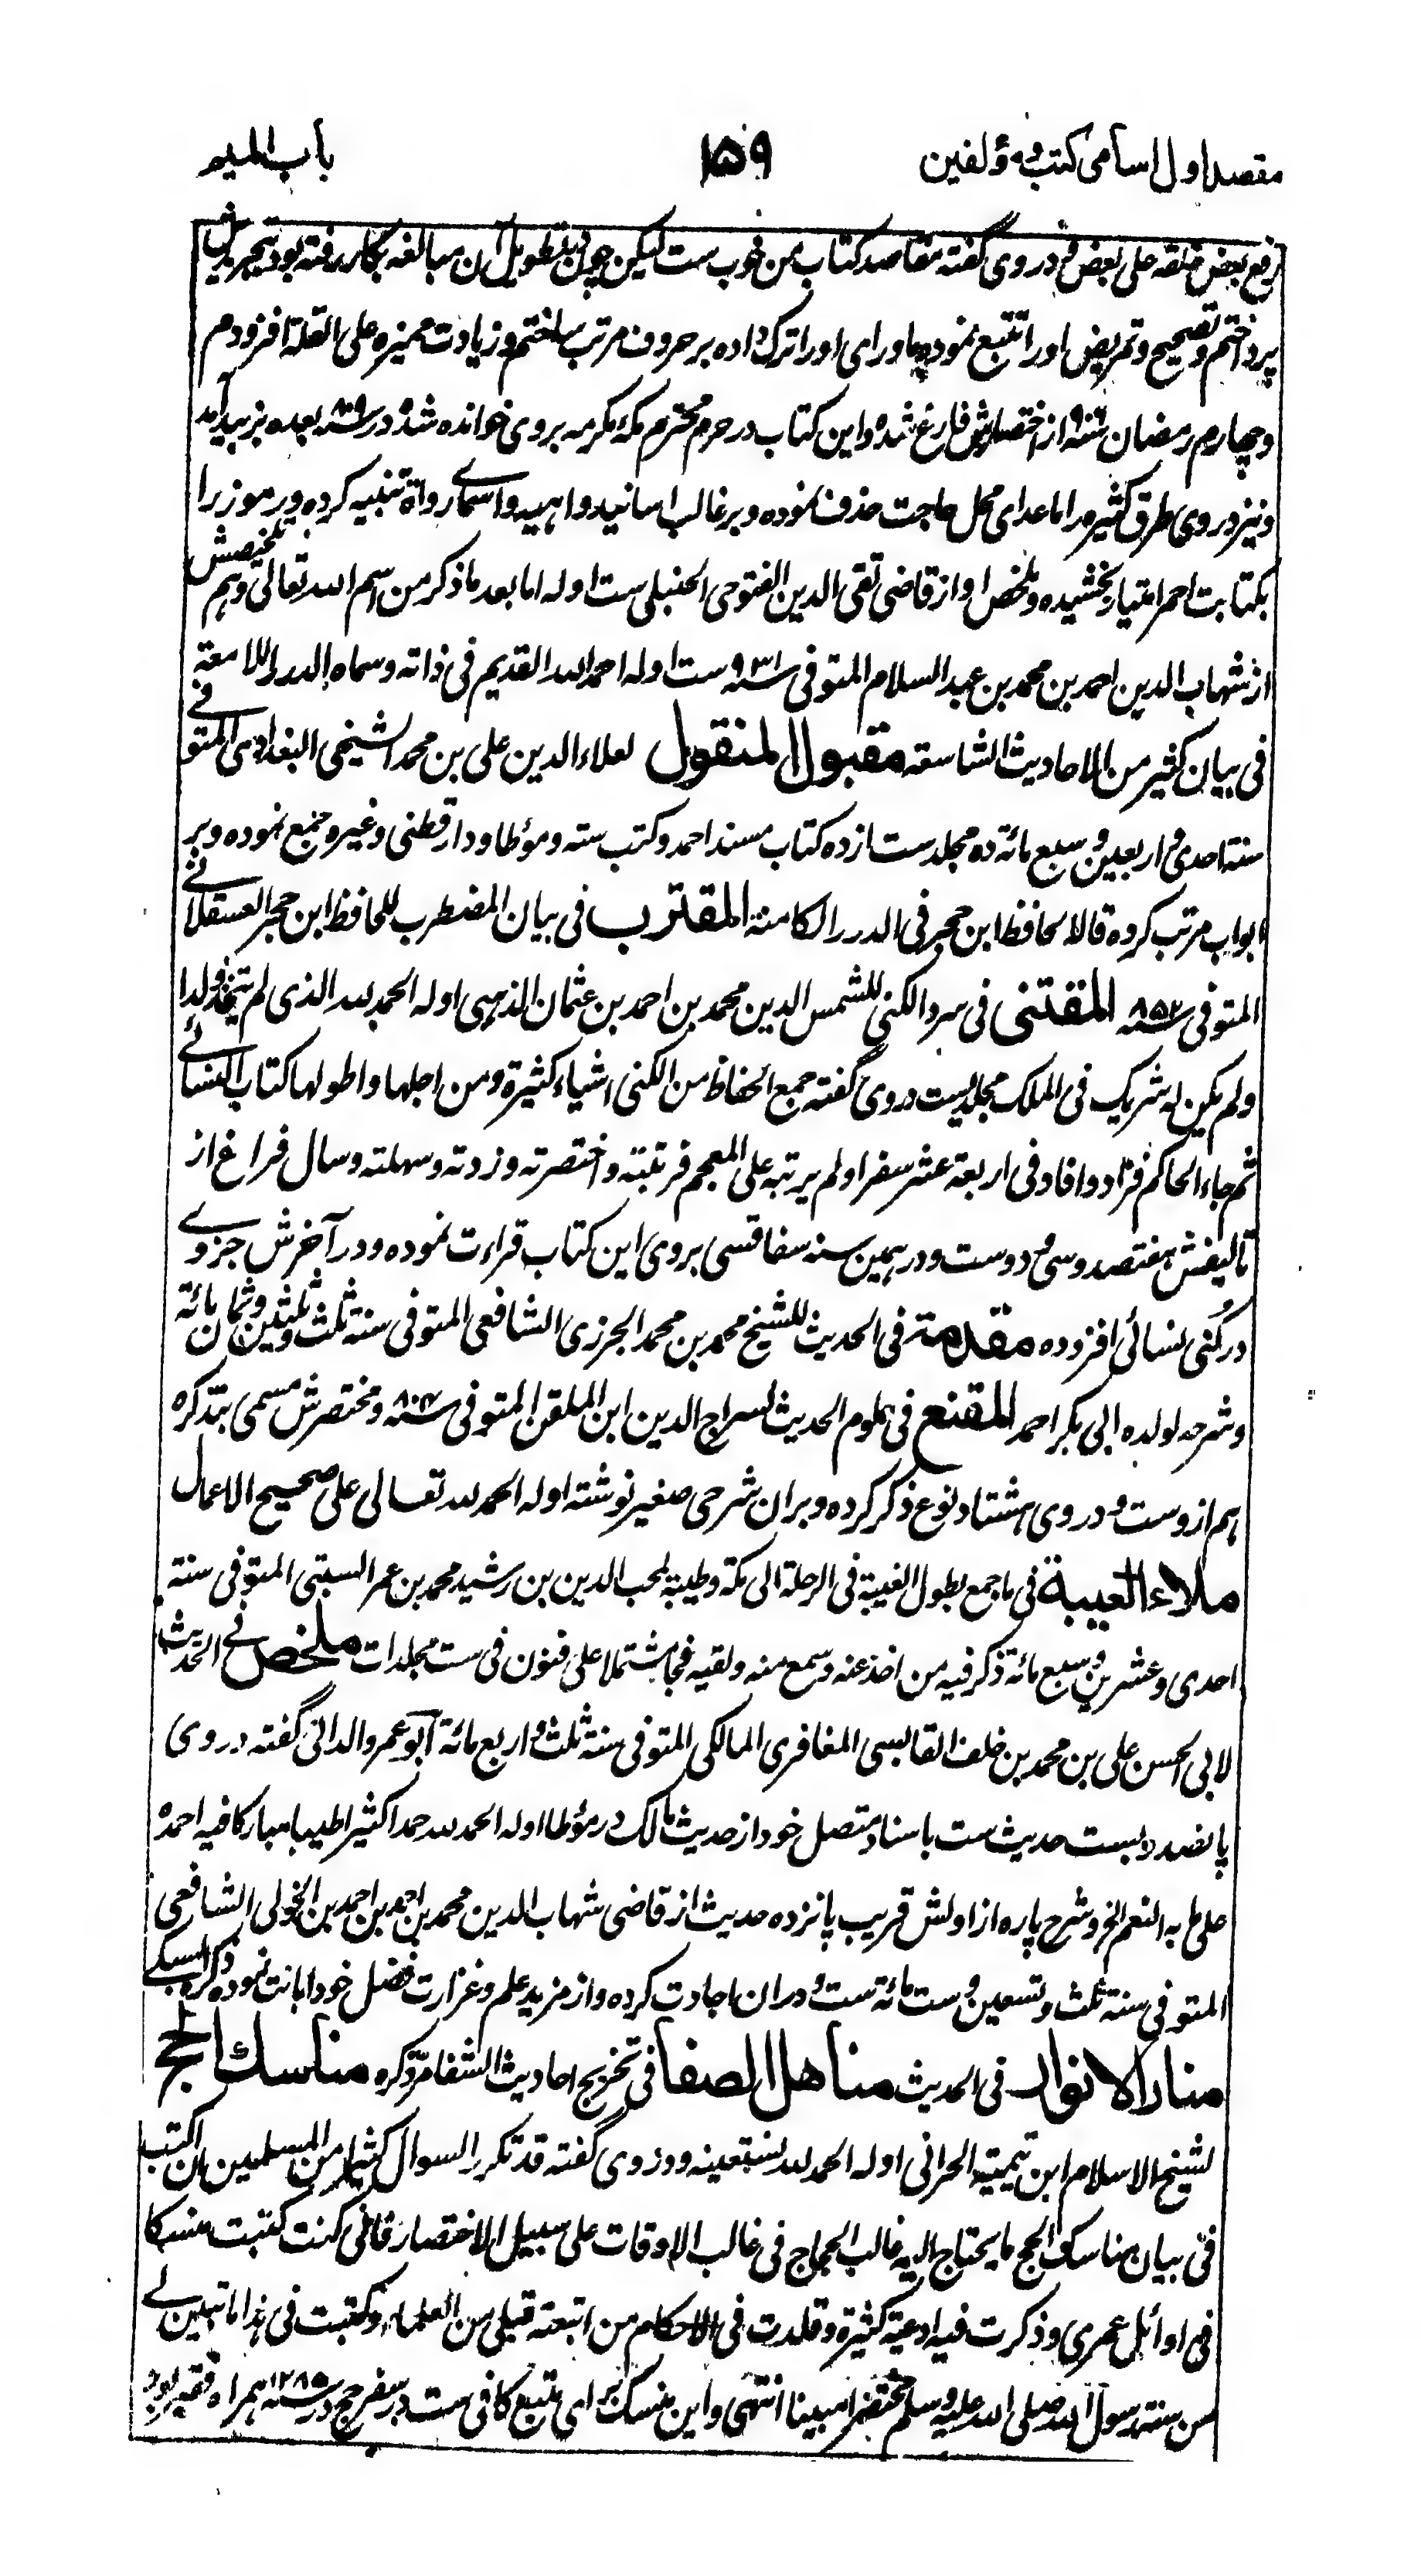 مقصد اول اسامی کتب و مؤلفین ۱۵۹ باب المیم
رفع بعض خلقه علی بعض و در وی گفته مقاصد کتاب من خوب ست لیکن چون بتطویل آن مبالغه بکار رفته بود بتجریدش
پرداختم و تصحیح و تمریض او را تتبع نموده ماورای او را ترک داده بر حروف مرتب ساختم و زیادت ممیزه علی القلة افزودم
و چهارم رمضان سنه از اختصارش فارغ شده و این کتاب در حرم محترم مکه مکرمه بروی خوانده شد و در سنه بعده بزبید آمد
و نیز در وی طرق کثیره را ماعدای محل حاجت حذف نموده و بر غالب اسانید واهیه و اسمای رواة تنبیه کرده و رموز را
بکتابت احمر امتیاز بخشیده و ملخص او از قاضی تقی الدین الفتوحی الحنبلی ست اوله اما بعد ما ذکر من اسم الله تعالی و هم تلخیصش
از شهاب الدین احمد بن محمد بن عبد السلام المتوفی سنه ۹۳۱ ست اوله احمد الله القدیم فی ذاته و سماه الدرر اللامعة
فی بیان کثیر من الاحادیث الشاسعة مقبول المنقول لعلاء الدین علی بن محمد الشیحی البغدادی المتوفی
سنة احدی و اربعین و سبع مائة ده مجلد ست از ده کتاب مسند احمد و کتب ستة و مؤطا و دارقطنی و غیره جمع نموده و بر
ابواب مرتب کرده قاله الحافظ ابن حجر فی الدرر الکامنة المقترب فی بیان المضطرب للحافظ ابن حجر العسقلانی
المتوفی سنه ۸۵۲ المقتنی فی سرد الکنی للشمس الدین محمد بن احمد بن عثمان الذهبی اوله الحمد لله الذی لم یتخذ ولدا
و لم یکن له شریک فی الملک مجلدیست در وی گفته جمع الحفاظ من الکنی اشیاء کثیرة و من اجلها و اطولها کتاب النسائی
ثم جاء الحاکم فزاد و افاد فی اربعة عشر سفرا و لم یرتبه علی المعجم فرتبته و اختصرته و زدته و سهلته و سال فراغ از
تالیفش هفتصد و سی و دوست و در همین سنه سفاقسی بروی این کتاب قراءت نموده و در آخرش جزوی
در کنی نسائی افزوده مقدمة فی الحدیث للشیخ محمد بن محمد الجزری الشافعی المتوفی سنة ثلث و ثلثین و ثمان مائة
و شرحه لولده ابی بکر احمد المقنع فی علوم الحدیث لسراج الدین ابن الملقن المتوفی سنه ۸۰۴ و مختصرش مسمی بتذکره
هم از وست و در وی هشتاد نوع ذکر کرده و بران شرحی صغیر نوشته اوله الحمد لله تعالی علی صحیح الاعمال
ملاء العیبة فی ما جمع بطول الغیبة فی الرحلة الی مکة و طیبة لمحب الدین بن رشید محمد بن عمر السبتی المتوفی سنة
احدی و عشرین و سبع مائة ذکر فیه من اخذ عنه و سمع منه و لقیه فجا مشتملا علی فنون فی ست مجلدات ملخص فی الحدیث
لابی الحسن علی بن محمد بن خلف القابسی المغافری المالکی المتوفی سنة ثلث و اربع مائة ابو عمرو الدانی گفته در وی
پانصد و بست حدیث ست باسناد متصل خود از حدیث مالک در مؤطا اوله الحمد لله حمدا کثیرا طیبا مبارکا فیه احمده
علی ما به انعم الخ و شرح پاره از اولش قریب پانزده حدیث از قاضی شهاب الدین محمد بن احمد بن احمد بن الخولی الشافعی
المتوفی سنة ثلث و تسعین و ست مائة ست و دران اجادت کرده و از مزید علم و غزارت فضل خود ابانت نموده ذکره السبکی
منار الانوار فی الحدیث مناهل الصفا فی تخریج احادیث الشفا مر ذکره مناسک الحج
لشیخ الاسلام ابن تیمیة الحرانی اوله الحمد لله نستعینه و در وی گفته قد تکرر السوال کثیر من المسلمین ان اکتب
فی بیان مناسک الحج ما یحتاج الیه غالب الحجاج فی غالب الاوقات علی سبیل الاختصار فانی کنت کتبت منسکا
فی اوائل عمری و ذکرت فیه ادعیة کثیرة و قلدت فی الاحکام من اتبعته قبلی من العلماء و کتبت فی هذا ما تبین لی
من سنة رسول الله صلی الله علیه و سلم مختصرا مبینا انتهی و این منسک برای متبع کافی ست در سفر حج در سنه ۱۲۸۵ همراه فقیر بود